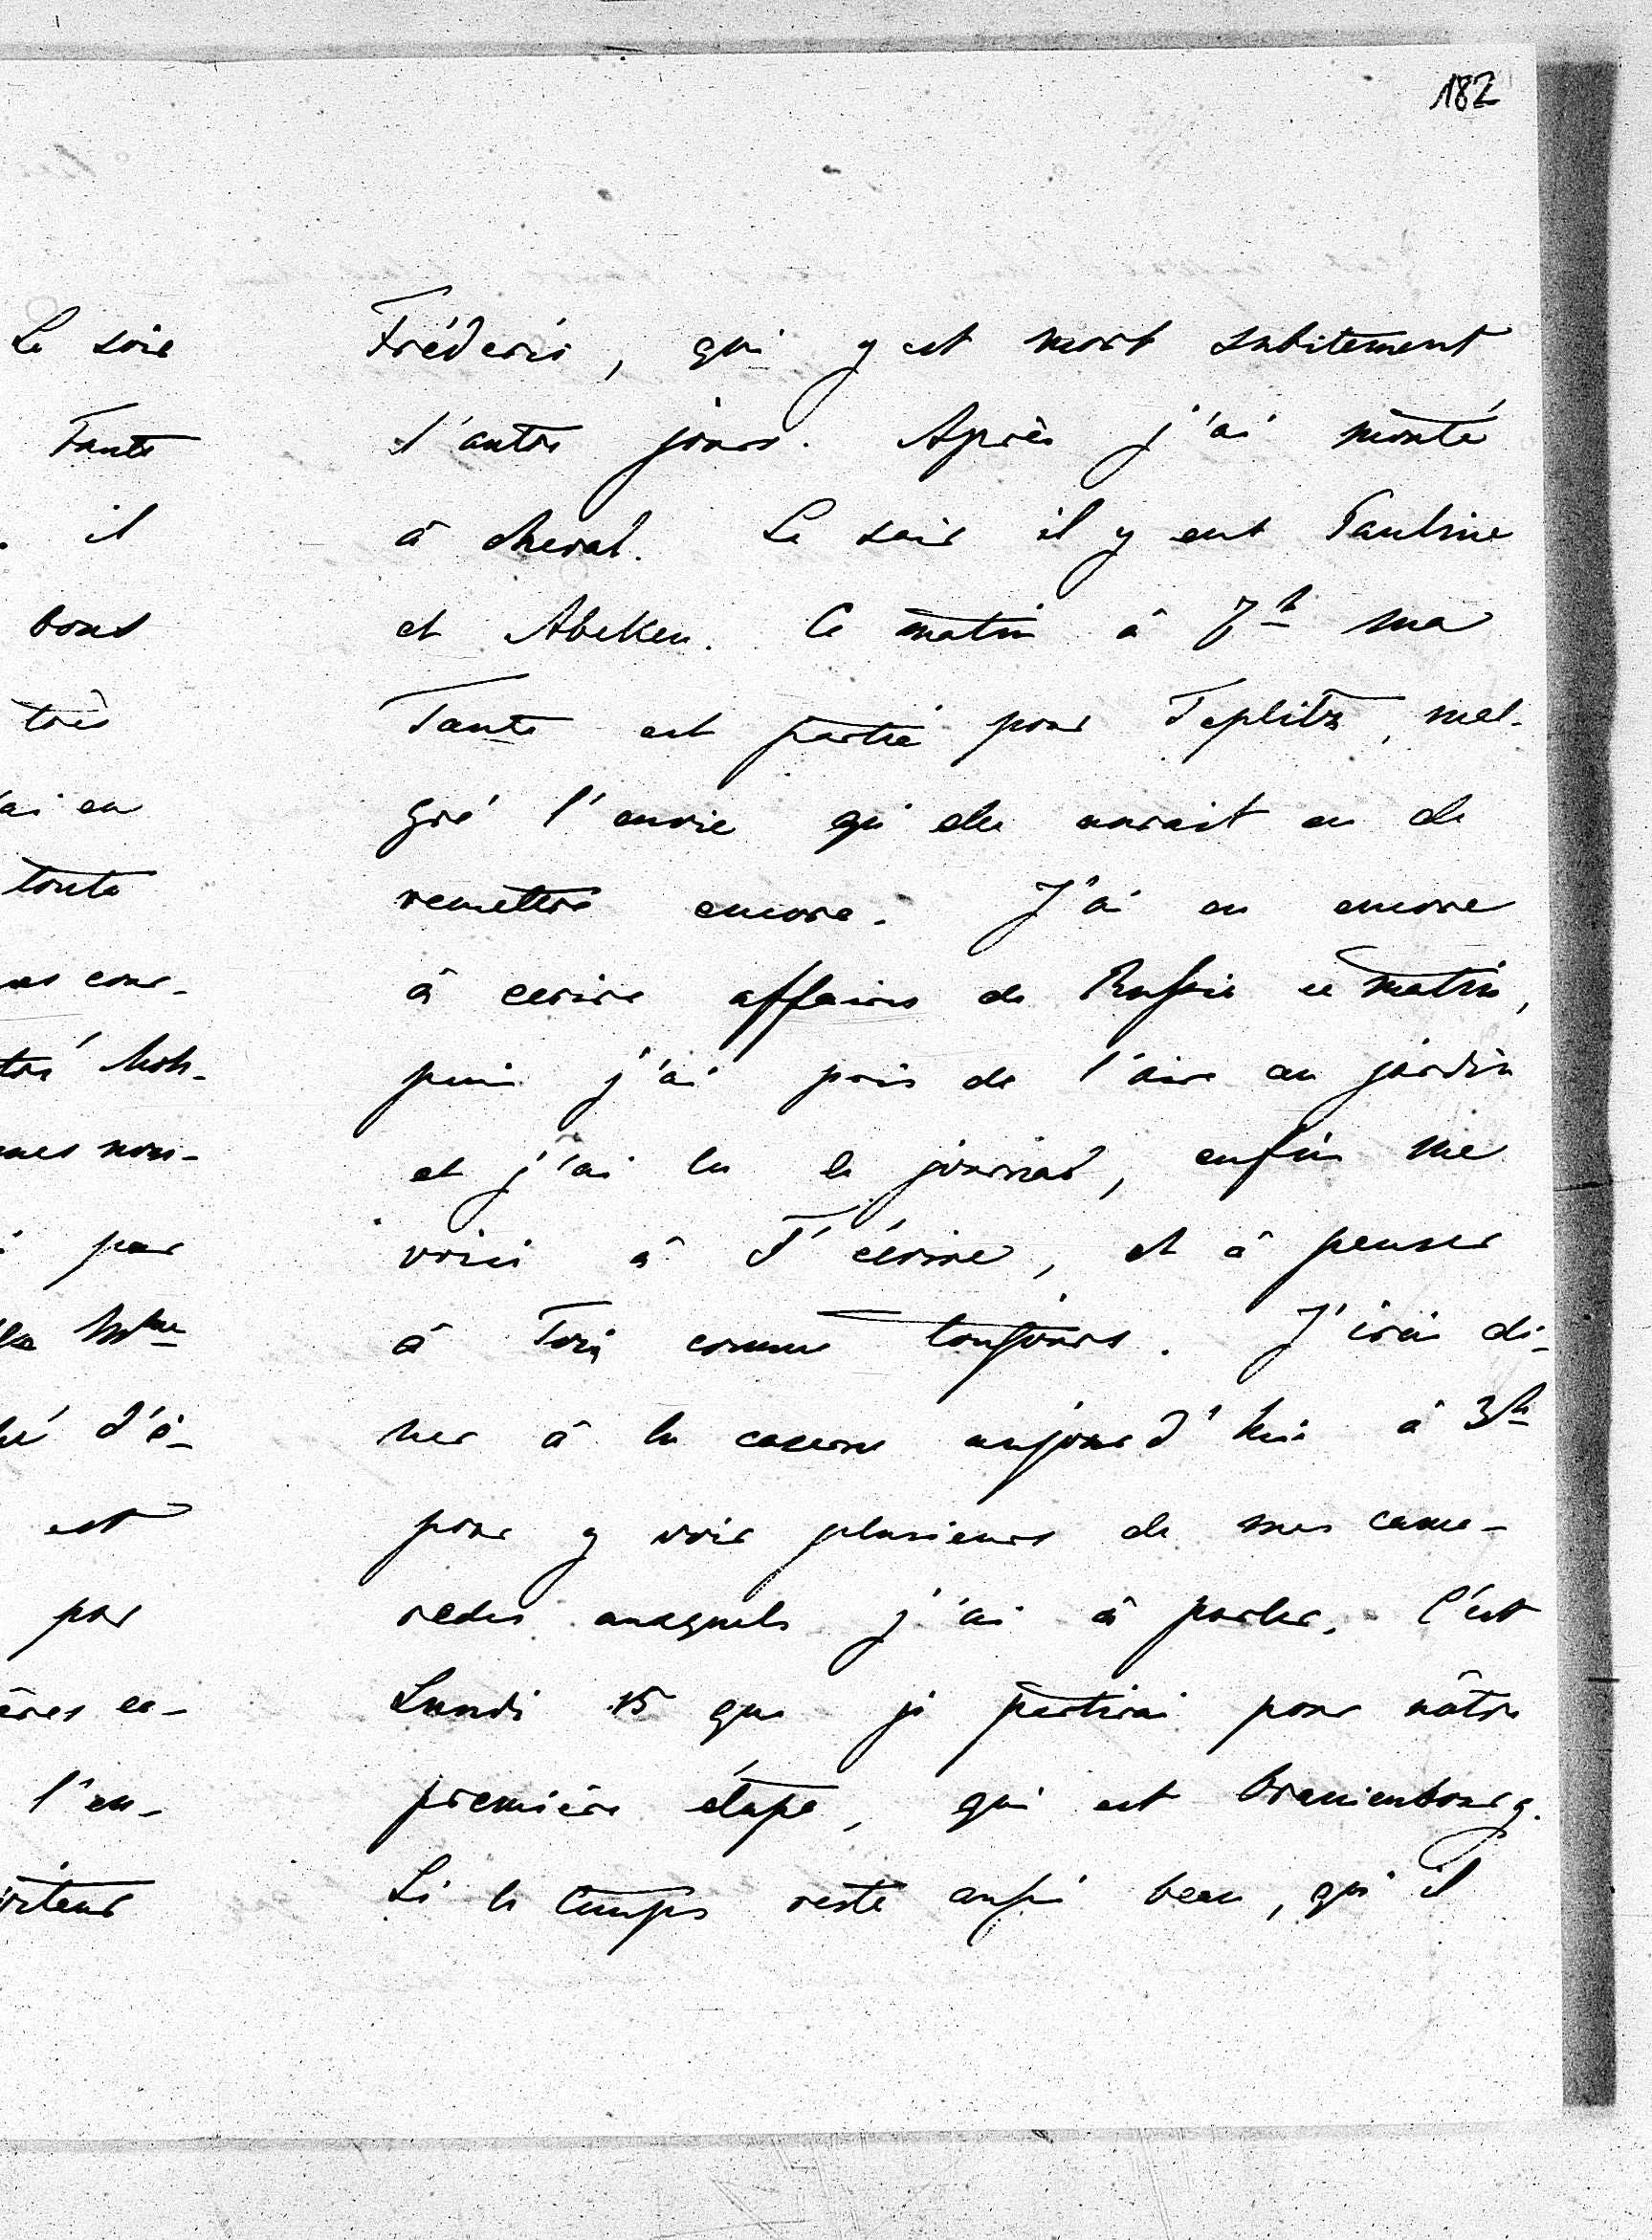 182
Le soir
Tante
il
bons
très
ai eu
toute
cour-
tré
mes nou-
par
Mme
d'é-
est
par
l'en-
Fréderic, qui y est mort subitement
l'autre jour. Après j'ai monté
à cheval. Le soir il y eut Pauline
et Abeken. Ce matin à 7h ma
Tante est partie pour Teplitz, mal-
gré l'envie qu'elle aurait eu de
remettre encore. J'ai eu encore
à ecrire affaires de Russie ce matin,
puis j'ai pris de l'air au jardin
et j'ai lu le journal, enfin me
voici à T'écrire, et à penser
à Toi comme toujours. J'irai di-
ner à la caserne aujourd'hui à 3h
pour y voir plusieurs de mes cama-
rades auxquels j'ai à parler. C'est
Lundi 15 que je partirai pour nôtre
première étape, qui est Oranienbourg.
Si le temps reste aussi beau, qu'il